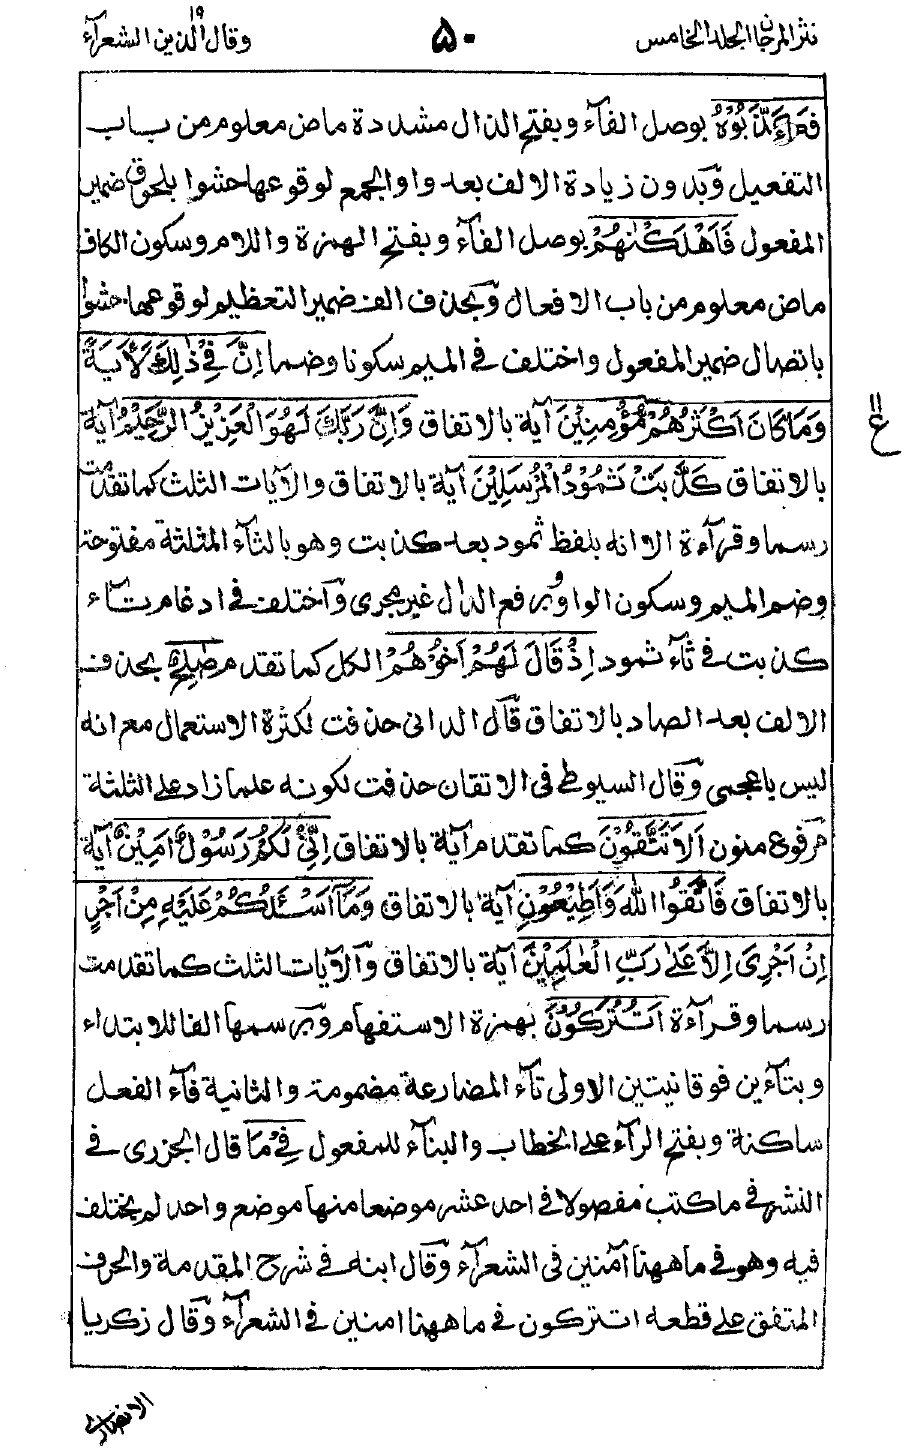 نثر المرجان الجلد الخامس ٥٠ وقال الذين ١٩ الشعرآء
فَكَذَّبُوْهُ بوصل الفآء وبفتح الذال مشددة ماض معلوم من باب
التفعيل وَبدون زيادة الالف بعد واو الجمع لوقوعها حشوا بلحوق ضمير
المفعول فَاَهْلَكْنٰهُمْ بوصل الفآء وبفتح الهمزة واللام وسكون الكاف
ماض معلوم من باب الافعال وَبحذف الف ضمير التعظيم لوقوعها حشوا
باتصال ضمير المفعول واختلف فى الميم سكونا وضما اِنَّ فِيْ ذٰلِكَ لَاٰيَةً
وَمَا كَانَ اَكْثَرُهُمْ مُؤْمِنِيْنَ آية بالاتفاق وَاِنَّ رَبَّكَ لَهُوَ الْعَزِيْزُ الرَّحِيْمُ آية
بالاتفاق كَذَّبَتْ ثَمُوْدُ الْمُرْسَلِيْنَ آية بالاتفاق والآيات الثلث كما تقدمت
رسما وقرآءة الا انه بلفظ ثمود بعد كذبت وهو بالثآء المثلثة مفتوحة
وضم الميم وسكون الواو وَبرفع الدال غير مجرى وَاختلف فى ادغام تآء
كذبت فى ثآء ثمود اِذْ قَالَ لَهُمْ اَخُوْهُمْ الكل كما تقدم صٰلِحٌ بحذف
الالف بعد الصاد بالاتفاق قَال الدانى حذفت لكثرة الاستعمال مع انه
ليس باعجمى وَقال السيوطى فى الاتقان حذفت لكونه علما زاد على الثلثة
مرفوع منون اَلَا تَتَّقُوْنَ كما تقدم آية بالاتفاق اِنِّيْ لَكُمْ رَسُوْلٌ اَمِيْنٌ آية
بالاتفاق فَاتَّقُوا اللّٰهَ وَاَطِيْعُوْنِ آية بالاتفاق وَمَآ اَسْئَلُكُمْ عَلَيْهِ مِنْ اَجْرٍ
اِنْ اَجْرِيَ اِلَّا عَلٰى رَبِّ الْعٰلَمِيْنَ آية بالاتفاق وَالآيات الثلث كما تقدمت
رسما وقرآءة اَتُتْرَكُوْنَ بهمزة الاستفهام وَبرسمها الفا للابتداء
وبتآءين فوقانيتين الاولى تآء المضارعة مضمومة والثانية فآء الفعل
ساكنة وبفتح الرآء على الخطاب والبنآء للمفعول فِيْ مَا قال الجزرى فى
النشر فى ما كتب مفصولا فى احد عشر موضعا منها موضع واحد لم يختلف
فيه وهو فى ما ههنا آمنين فى الشعرآء وَقال ابنه فى شرح المقدمة والحرف
المتفق على قطعه اتتركون فى ما ههنا امنين فى الشعرآء وَقال زكريا
الانصارى
ع
١١